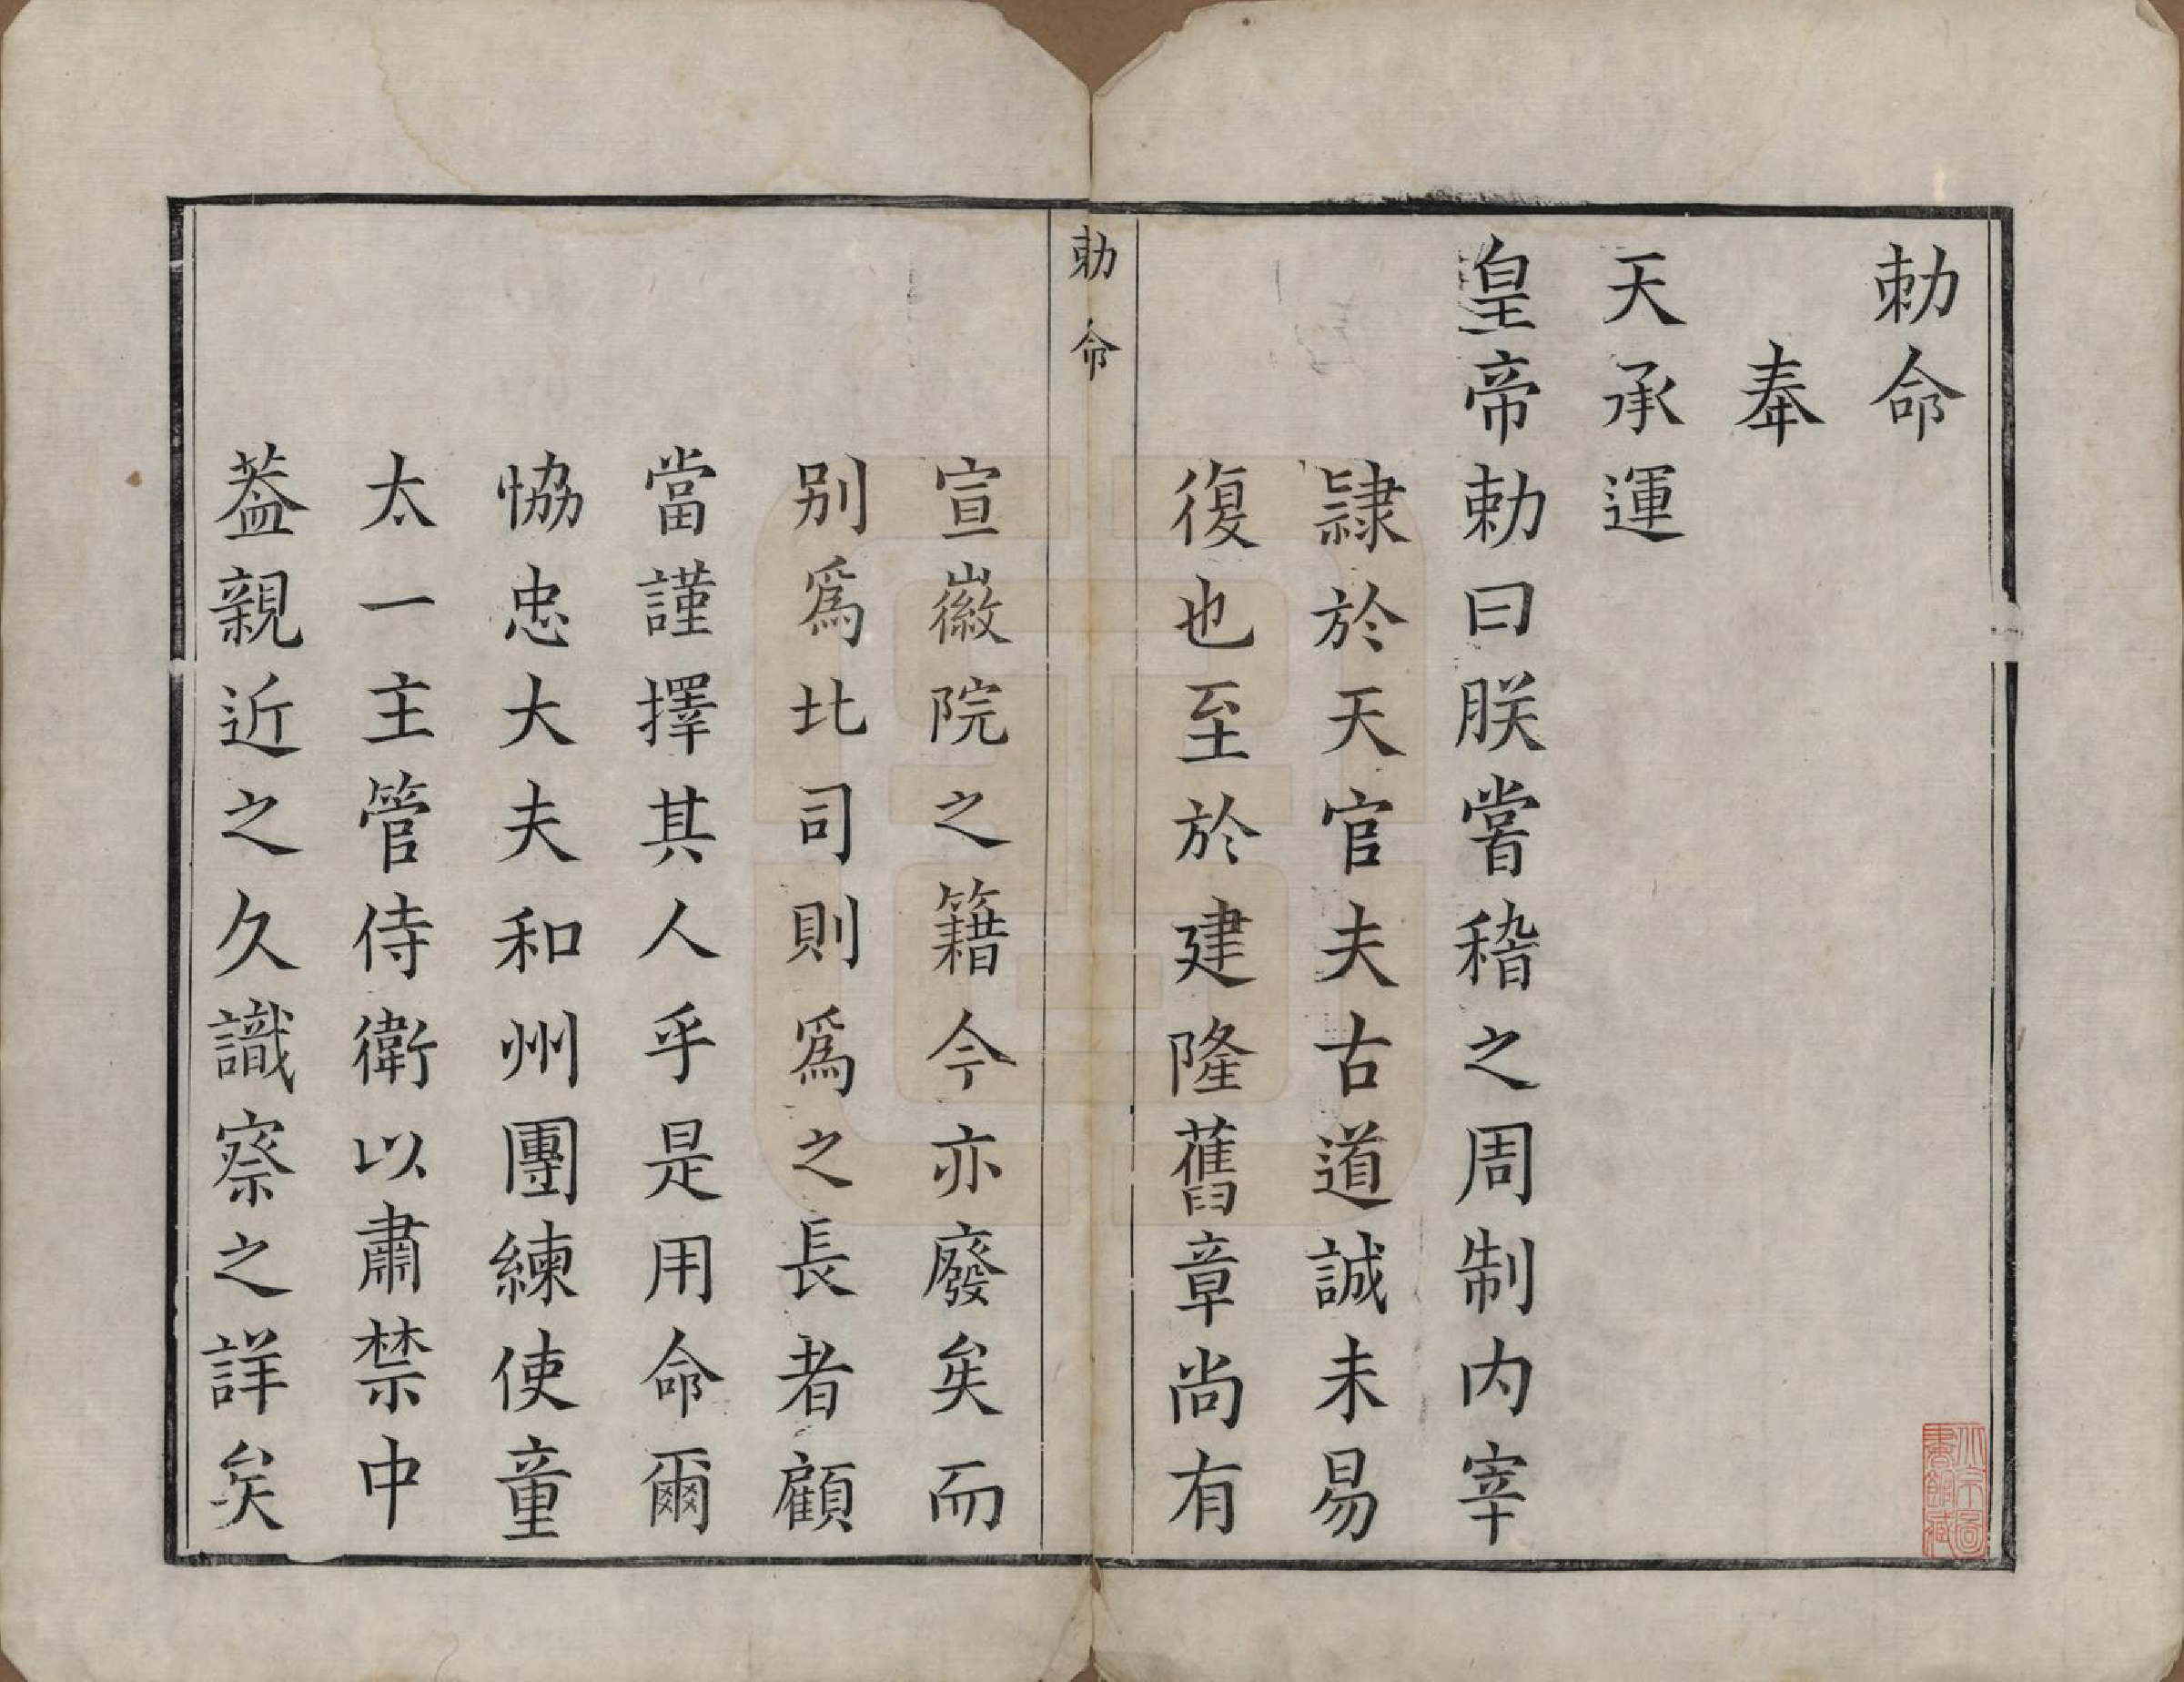 勅命
奉
天承運
皇帝勅曰朕嘗稽之周制内宰
隷於天官夫古道誠未易
復也至於建隆舊章尚有
勅命
宣徽院之籍今亦廢矣而
别爲比司則爲之長者顧
當謹擇其人乎是用命爾
恊忠大夫和州團練使童
太一主管侍衛以肅禁中
葢親近之久識察之詳矣